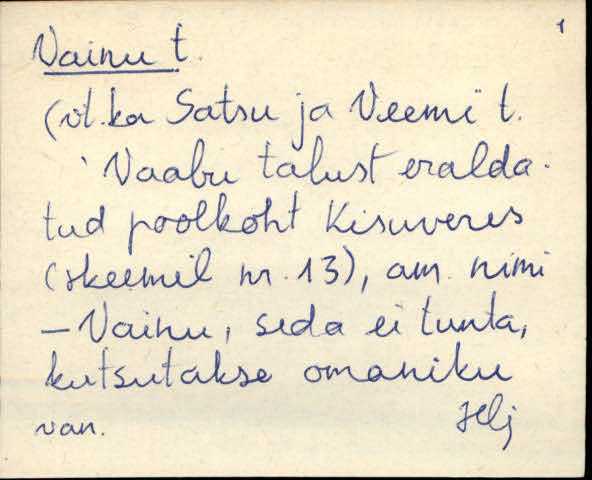 1
Vainu t.
(vt. ka Satsu ja Veemi t.
'Vaabu talust eralda-
tud poolkoht Kisuveres
(skeemil nr. 13), am. nimi
– Vainu, seda ei tunta,
kutsutakse omaniku
van.